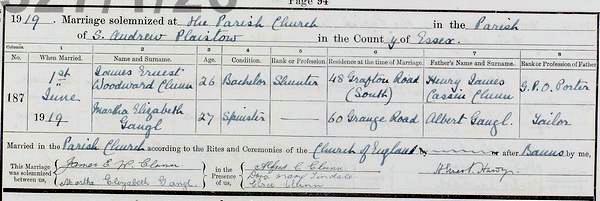 Page 94
1919. Marriage solemnized at the Parish Church in the Parish
of S. Andrew Plaistow in the County of Essex.
Columns 1 2 3 4 5 6 7 8
No. When Married. Name and Surname. Age. Condition. Rank or Profession. Residence at the time of Marriage. Father's Name and Surname. Rank or Profession of Father.
187
1st June 1919
James Ernest Woodward Clunn 26 Bachelor Shunter 48 Grafton Road (South) Henry James Cassin Clunn G.P.O. Porter
Martha Elizabeth Gangl 27 Spinster — 60 Grange Road Albert Gangl. Tailor
Married in the Parish Church according to the Rites and Ceremonies of the Church of England by or after Banns by me,
This Marriage was solemnized between us,
James E. W. Clunn
Martha Elizabeth Gangl.
in the Presence of us,
Alfred C Clunn
Dora Mary
Elsie Clunn